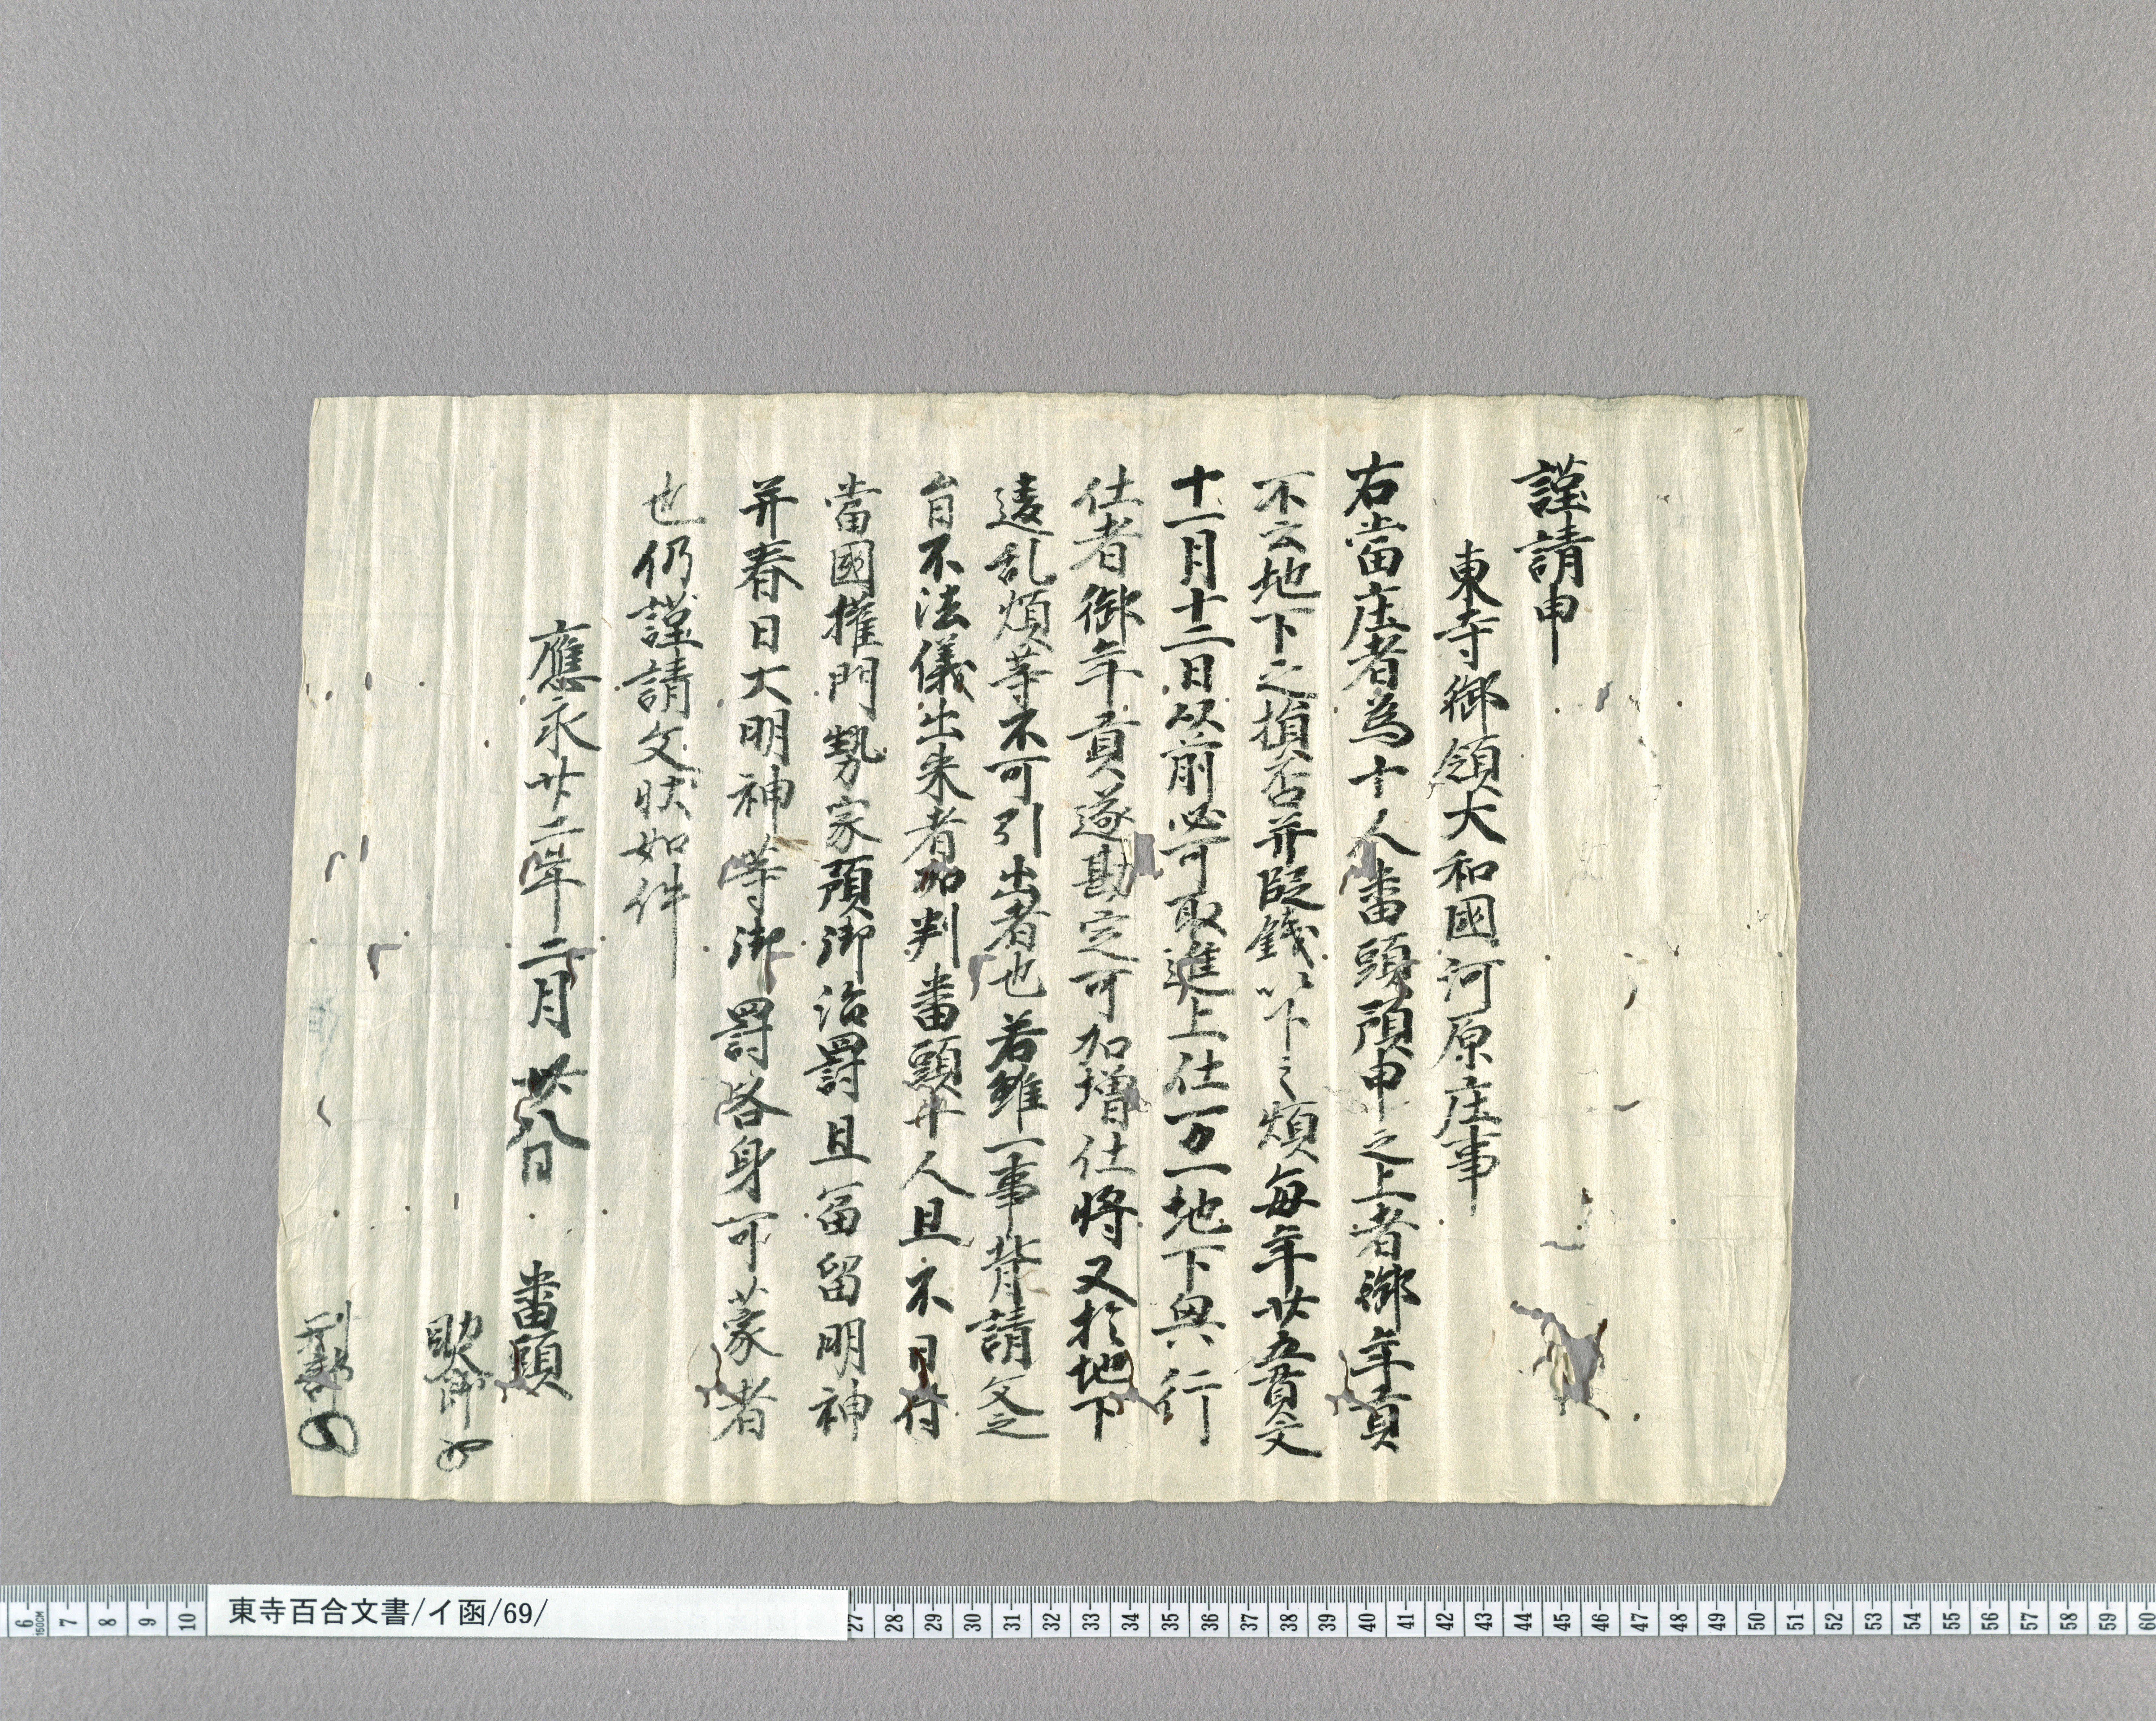 謹請申
東寺御領大和國河原庄事
右當庄者為十人番頭預申之上者御年貢
不云地下之損否并段錢以下之煩毎年廿五貫文
十一月十二日以前必可取進上仕万一地下興行
仕者御年貢遂勘定可加増仕将又於地下
違乱煩等不可引出者也若雖一事背請文之
旨不法儀出来者加判番頭廾人且不日付
當國権門勢家預御治罰且冨留明神
并春日大明神等御罰各身可蒙者
也仍謹請文状如件
應永廿二年二月廿八日 番頭
助
刑部
東寺百合文書/イ函/69/
6 7 8 9 10 27 28 29 30 31 32 33 34 35 36 37 38 39 40 41 42 43 44 45 46 47 48 49 50 51 52 53 54 55 56 57 58 59 60